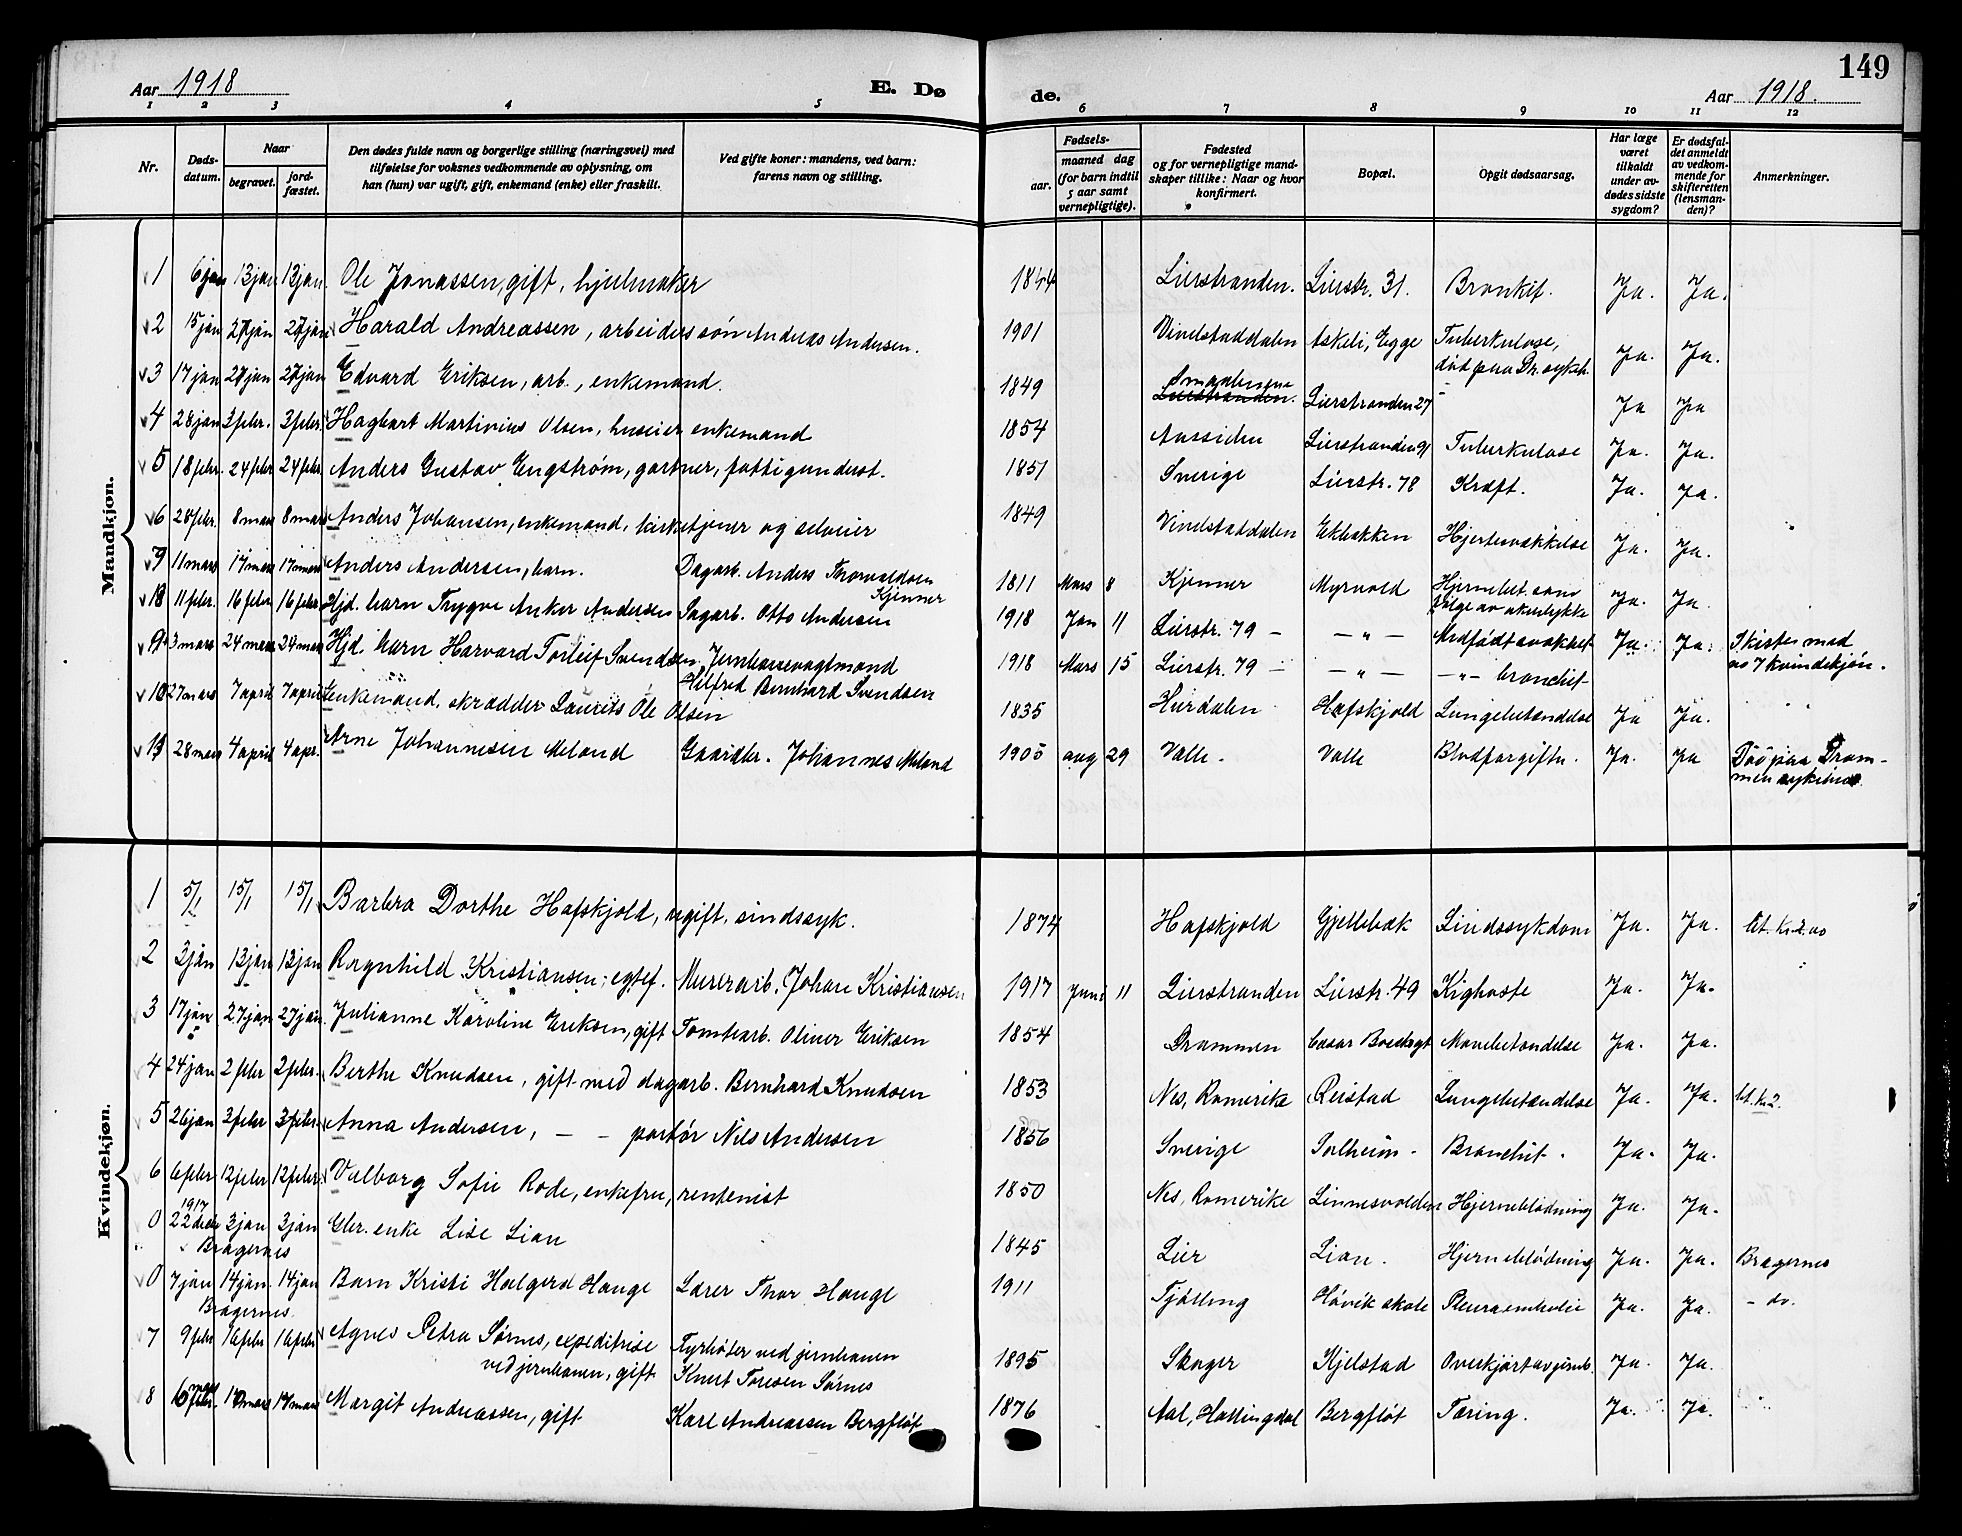 Aar 1918
E. Dø
de.
149
Aar 1918.
1 2 3 4 5 6 7 8 9 10 11 12
Nr.
Døds-
datum.
Naar
begravet.
jord-
fæstet.
Den dødes fulde navn og borgerlige stilling (næringsvei) med
tilføielse for voksnes vedkommende av oplysning, om
han (hun) var ugift, gift, enkemand (enke) eller fraskilt.
Ved gifte koner: mandens, ved barn:
farens navn og stilling.
Fødsels-
aar.
maaned dag
(for barn indtil
5 aar samt
vernepligtige).
Fødested
og for vernepligtige mand-
skaper tillike: Naar og hvor
konfirmert.
Bopæl.
Opgit dødsaarsag.
Har læge
været
tilkaldt
under av-
dødes sidste
sygdom?
Er dødsfal-
det anmeldt
av vedkom-
mende for
skifteretten
(lensman-
den)?
Anmerkninger.
Mandkjøn.
1 6 jan 13 jan 13 jan. Ole Jonassen, gift, hjulmaker 1844 Lierstranden. Lierstr. 31. Bronkit. Ja. Ja.
2 15 jan 27 jan 27 jan Harald Andreassen, arbeiders søn Andreas Andersen. 1901 Vindstaddalen Askeli, Egge Tuberkulose, Ja. Ja.
død paa Dr. sykeh.
3 17 jan 27 jan 27 jan Edvard Eriksen, arb., enkemand. 1849 Smaalenene Lierstranden. Lierstranden 27 - Ja Ja
4 28 jan 3 febr. 3 febr. Hagbart Martinius Olsen, huseier enkemand 1854 Aassiden Lierstranden 91 Tuberkulose Ja. Ja.
5 18 febr. 24 febr 24 febr Anders Gustav Engstrøm, gartner, fattigunderst. 1851 Sverige Lierstr. 78 Kræft. Ja. Ja.
6 28 febr. 8 mars 8 mars Anders Johansen, enkemand, kirketjener og selveier 1849 Vindstaddalen Ekbakken Hjertesvækkelse Ja. Ja.
11 mars 17 mars 17 mars Anders Andersen, barn. Dagarb. Anders Thorvaldsen 1811 Mars 8 Kjenner Myrvold Hjernebet. som Ja. Ja.
Kjenner
følge av
11 febr. 16 febr 16 febr. Hjd. barn Trygve Anker Andersen Sagarb. Otto Andersen 1918 Jan 11 Lierstr. 79 - - " - Medfødt svakhet Ja. Ja. I kiste med
no 7 kvindekjøn.
9 3 mars 24 mars 24 mars Hjd. barn Harvard Torleif Svendsen Jernbanevagtmand 1918 Mars 15 Lierstr. 79 - - " - - " - bronchit
Helfred Bernhard Svendsen
10 27 mars 7 april 7 april Enkemand, skrædder Laurits Ole Olsen 1835 Hurdalen Hafskjold Lungebetændelse Ja Ja.
11 28 mars 4 april 4 apr. Arne Johannesen Meland Gaardbr. Johannes Meland 1905 aug 29 Valle. Valle Blodforgiftn. Ja. Ja Død paa Dram-
men sykehus
Kvindekjøn.
1 5/1 15/1 15/1 Barbra Dorthe Hafskjold, ugift, sindssyk. 1874 Hafskjold Gjellebæk Sindssykdom Ja. Ja.
2 3 jan 13 jan 13 jan Ragnhild Kristiansen; egtef. Murerarb. Johan Kristiansen 1917 Juni 11 Lierstranden Lierstr. 49 Kighoste Ja. Ja.
3 17 jan 27 jan 27 jan. Julianne Karoline Eriksen, gift Tomtearb. Oliver Eriksen 1854 Drammen Mavebetændelse Ja. Ja.
4 24 jan 2 febr 2 febr. Berthe Knudsen, gift med dagarb. Bernhard Knudsen 1853 Nes, Romerike Reistad Lungebetændelse Ja. Ja.
5 26 jan 3 febr 3 febr. Anna Andersen, - - portør Nils Andersen 1856 Sverige Solheim - Bronchit. Ja. Ja.
6 6 febr 12 febr 12 febr. Valborg Sofie Rode, enkefru, rentenist 1850 Nes, Romerike Linnesvolden Hjerneblødning Ja. Ja.
1917
0 22 des 3 jan 3 jan Gbr. enke Lise Lian 1845 Lier Lian. Hjerneblødning Ja. Ja. Bragernes
Bragernes
0 7 jan 14 jan. 14 jan Barn Kristi Halgerd Hauge Lærer Thor Hauge 1911 Tjølling Høvik skole Pleuraembolie Ja. Ja. - do.
Bragernes.
7 9 febr 16 febr 16 febr. Agnes Petra Sørnes, expeditrise Fyrbøter ved jernbanen 1895 Skoger Kjelstad Overkjørt av jernb. Ja. Ja.
ved jernbanen, gift Knut Toresen Sørnes
8 mars 17 mars 17 mars Margit Andreassen, gift Karl Andreassen Bergfløt 1876 Aal, Hallingdal Bergfløt Tæring. Ja. Ja.